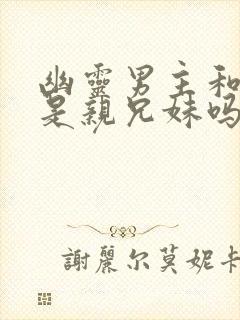 幽靈男主和
是親兄妹吗
謝麗尔莫妮卡